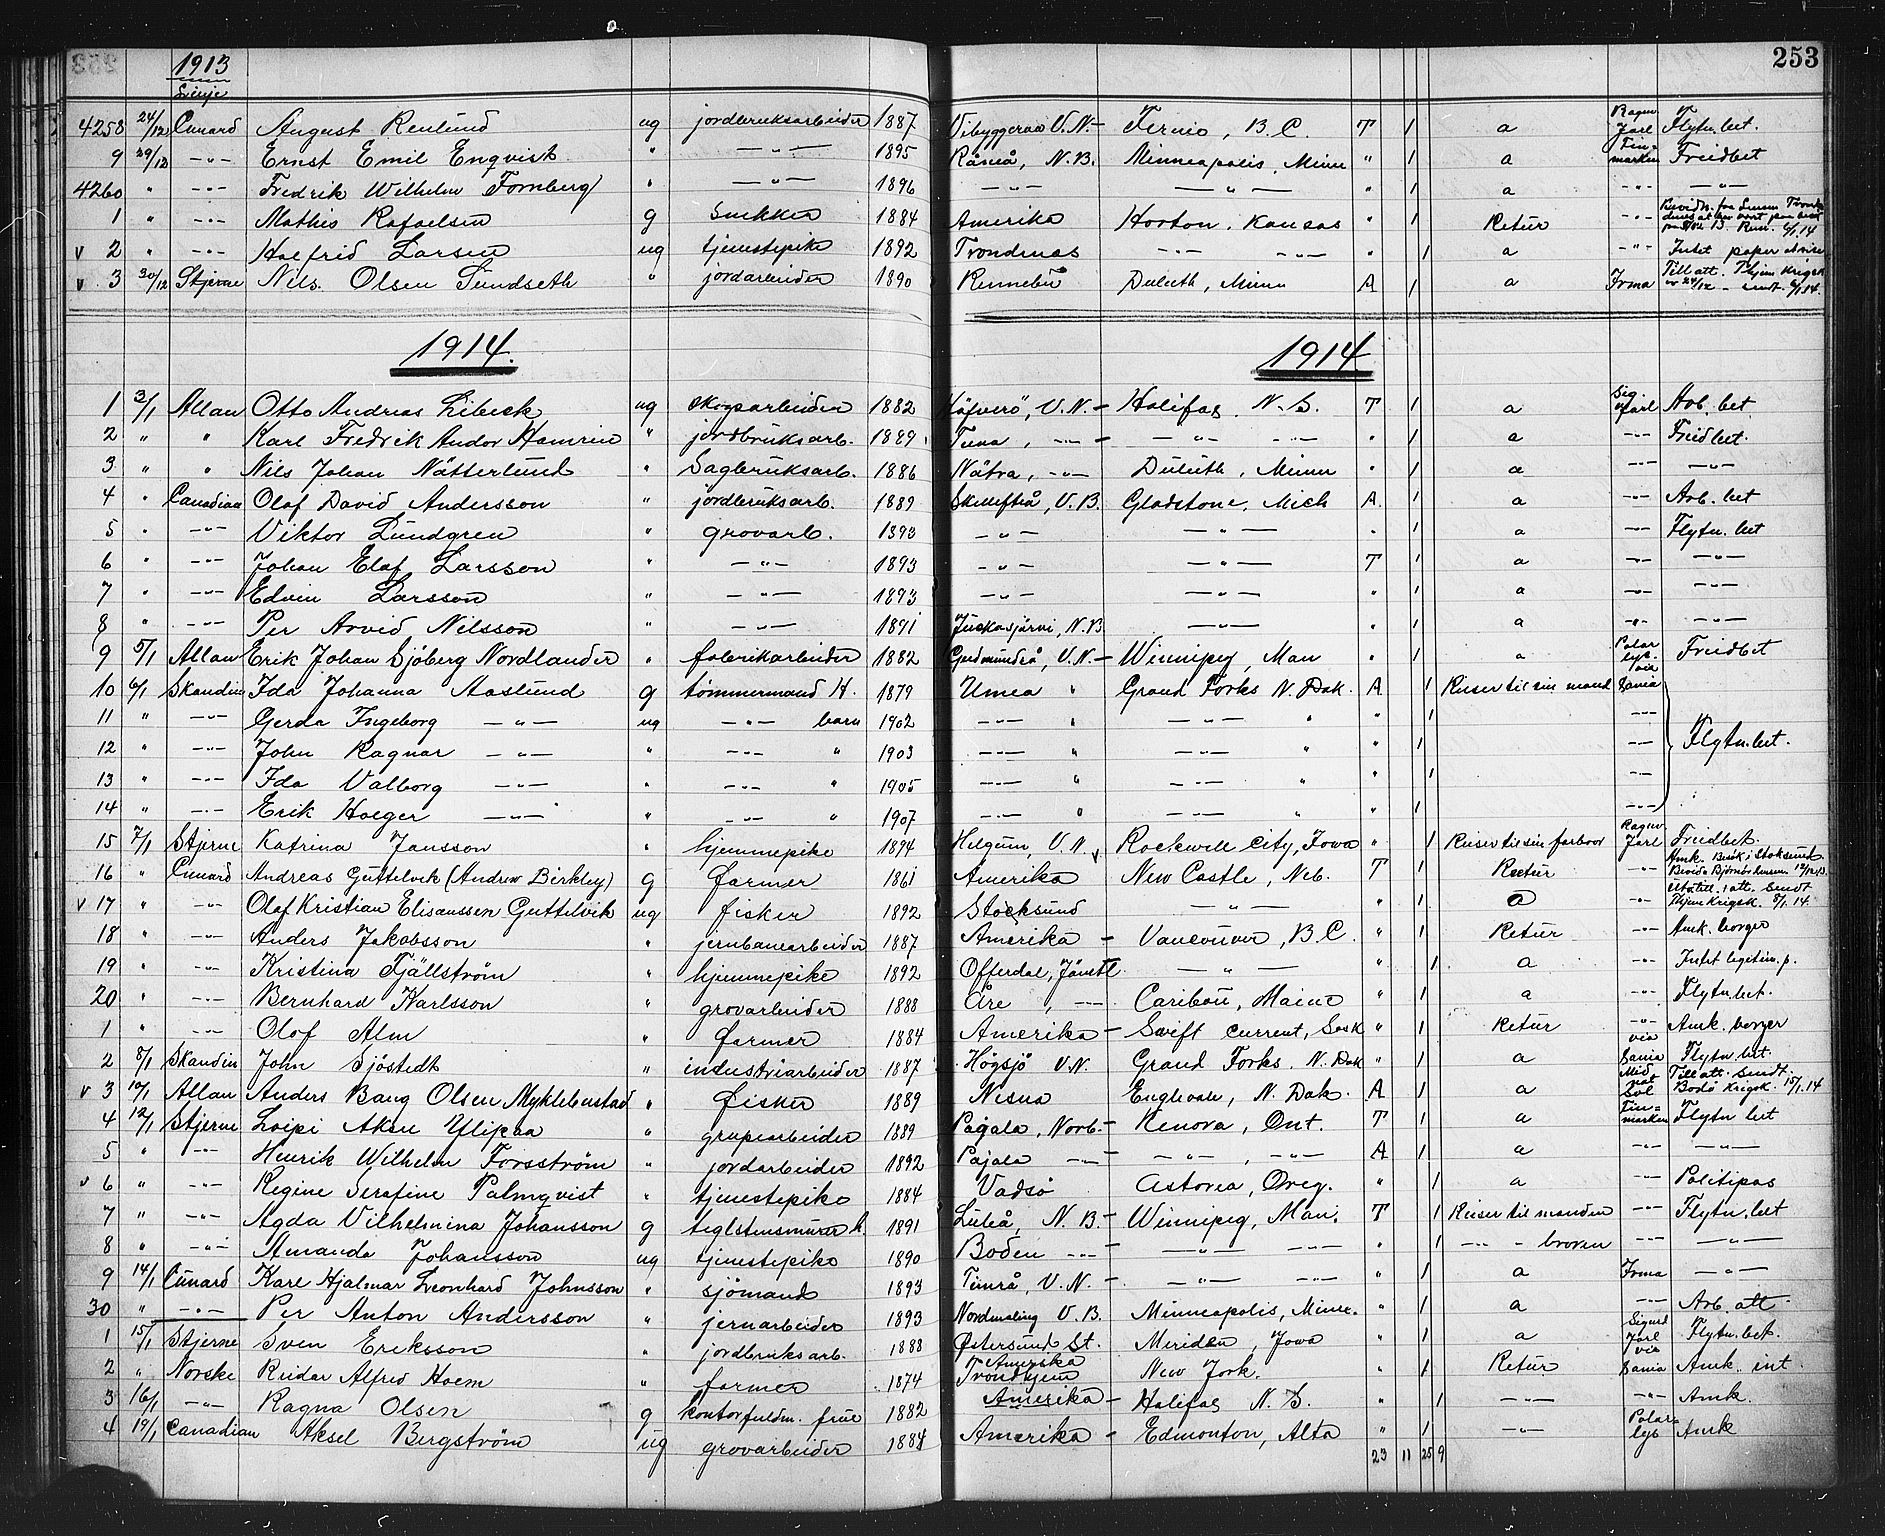 253
1913
Linje
4258 24/12 Cunard August Renlund ug jordbruksarbeider 1887 Vibyggeraa V.N. - Fernie, B.C. T 1 a Ragnv Jarl Flytn. bet.
9 29/12 -"- Ernst Emil Enqvist " -"- 1895 Råneå, N.B. Minneapolis, Minn " 1 a Finmarken Freidbet
4260 " -"- Fredrik Wilhelm Fornberg " -"- 1896 -"- -"- " 1 a -"- -"-
1 " -"- Mathis Rafaelsen g Snekker 1884 Amerika Horton, Kansas " 1 Retur -"-
v 2 " -"- Halfrid Larsen ug tjenestepike 1892 Trondenes -"- -"- " 1 a -"- Intet papir
v 3 30/12 Stjerne Nils Olsen Sundseth " jordarbeider 1890 Rennebu Duluth, Minn A 1 a Irma Till att. Thjem Krigsk
1914. 1914
1 3/1 Allan Otto Andreas Libeck ug skogsarbeider 1882 Häfverö, V.N. - Halifax, N.S. T 1 a Sig Jarl Arb. bet.
2 " " Karl Fredrik Andor Hamrin " jordbruksarb. 1889 Tuna, -"- - -"- -"- " 1 a -"- Freidbet.
3 " " Nils Johan Nätterlund " Sagbruksarb. 1886 Nätra, -"- Duluth, Minn " 1 a -"- -"-
4 " Canadian Olof David Andersson " jordbruksarb. 1889 Skellefteå, V.B. Gladstone, Mich A. 1 a -"- Arb. bet
5 " -"- Viktor Lundgren " grovarb. 1893 -"- -"- " 1 a -"- Flytn. bet
6 " -"- Johan Elof Larsson " -"- 1893 -"- -"- T 1 a -"- -"-
7 " -"- Edvin Larsson " -"- 1893 -"- -"- " 1 a -"- -"-
8 " -"- Per Arvid Nilsson " -"- 1891 Juckasjärvi, N.B -"- " 1 a -"- -"-
9 5/1 Allan Erik Johan Sjöberg Nordlander " fabrikarbeider 1882 Gudmundrå, V.N. - Winnipeg, Man " 1 a Polarlys Freidbet
10 6/1 Skandin Ida Johanna Aaslund g tømmermand H. 1879 Umea " Grand Forks N. Dak. A 1 Reiser til sin mand via Dania
11 " -"- Gerda Ingeborg -"- ug -"- barn 1902 -"- " -"- " " 1 -"-
12 " -"- John Ragnar -"- " -"- " 1903 -"- " -"- " " 1 -"- Flytn.bet.
13 " -"- Ida Valborg -"- " -"- " 1905 -"- " -"- " " 1 -"-
14 " -"- Erik Holger -"- " -"- " 1907 -"- " -"- " " 1 -"-
15 7/1 Stjerne Katrina Jansson " hjemmepike 1894 Helgum, V.N. v Rockwell City, Iowa " 1 Reiser til sin farbror Ragnv Jarl Freidbet.
16 " Cunard Andreas Guttelvik (Andrew Birkley) g farmer 1861 Amerika New Castle, Neb. T 1 Retur -"- Amk.
v 17 " -"- Olaf Kristian Elisaussen Guttelvik ug fisker 1892 Stocksund -"- " 1 a -"- Thjem Krigsk. 8/1.14.
18 " -"- Anders Jakobsson " jernbanearbeider 1887 Amerika - Vancouver, B.C. " 1 Retur -"- Amk. borger
19 " -"- Kristina Fjällström " hjemmepike 1892 Offerdal, Jämtl. -"- " 1 a -"- Intet legitim. p.
20 " -"- Bernhard Karlsson " grovarbeider 1888 Åre, -"- Caribou, Maine " 1 a -"- Flytn.bet.
1 " -"- Olof Alm " farmer 1884 Amerika - Swift Current, Sask " 1 Retur -"- Amk. borger
2 8/1 Skandin John Sjöstedt " industriarbeider 1887 Högsjö V.N. Grand Forks, N. Dak " 1 a via Dania Flytn. bet.
v 3 10/1 Allan Anders Bang Olsen Myklebustad " fisker 1889 Nesna Englevale, N. Dak. A 1 a Midnatsol Till att. Sendt. Bodø Krigsk. 15/1.14
4 12/1 Stjerne Loipi Aksu Ylipaa " grubearbeider 1889 Pajala, Norb. - Kenora, Ont. T 1 a Finmarken Flytn bet
5 " -"- Henrik Wilhelm Forsström " jordarbeider 1892 Pajala -"- -"-, -"- A 1 a -"- -"-
v 6 " -"- Regine Serafine Palmqvist " tjenestepike 1884 Vadsö Astoria, Oreg. " 1 a -"- Politipas
7 " -"- Agda Vilhelmina Johansson g teglstensmurer h. 1891 Luleå, N.B - Winnipeg, Man. T 1 Reiser til manden -"- Flytn.bet
8 " -"- Amanda Johansson ug tjenestepike 1890 Boden -"- -"- -"- " 1 -"- - broren -"- -"-
9 14/1 Cunard Karl Hjalmar Leonhard Johnsson " sjömand 1893 Timrå, V.N. - -"- -"- " 1 a Irma -"-
30 " -"- Per Anton Andersson " jernarbeider 1893 Nordmaling V.B. Minneapolis, Minn. " 1 a -"- Arb. att
1 15/1 Stjerne Sven Eriksson " jordbruksarb. 1888 Østersund St. Meriden, Iowa " 1 a Sigurd Jarl Flytn. bet.
2 " Norske Reidar Alfred Hoem " farmer 1874 Amerika Trondhjem New York. " 1 Retur via Dania Amk. int
3 16/1 -"- Ragna Olsen g kontorfuldm. frue 1882 Amerika - Halifax N.S. " 1 -"- -"- Amk.
4 19/1 Canadian Aksel Bergström ug grovarbeider 1884 Amerika - Edmonton, Alta " 1 -"- Polarlys Amk
23 11 25 9